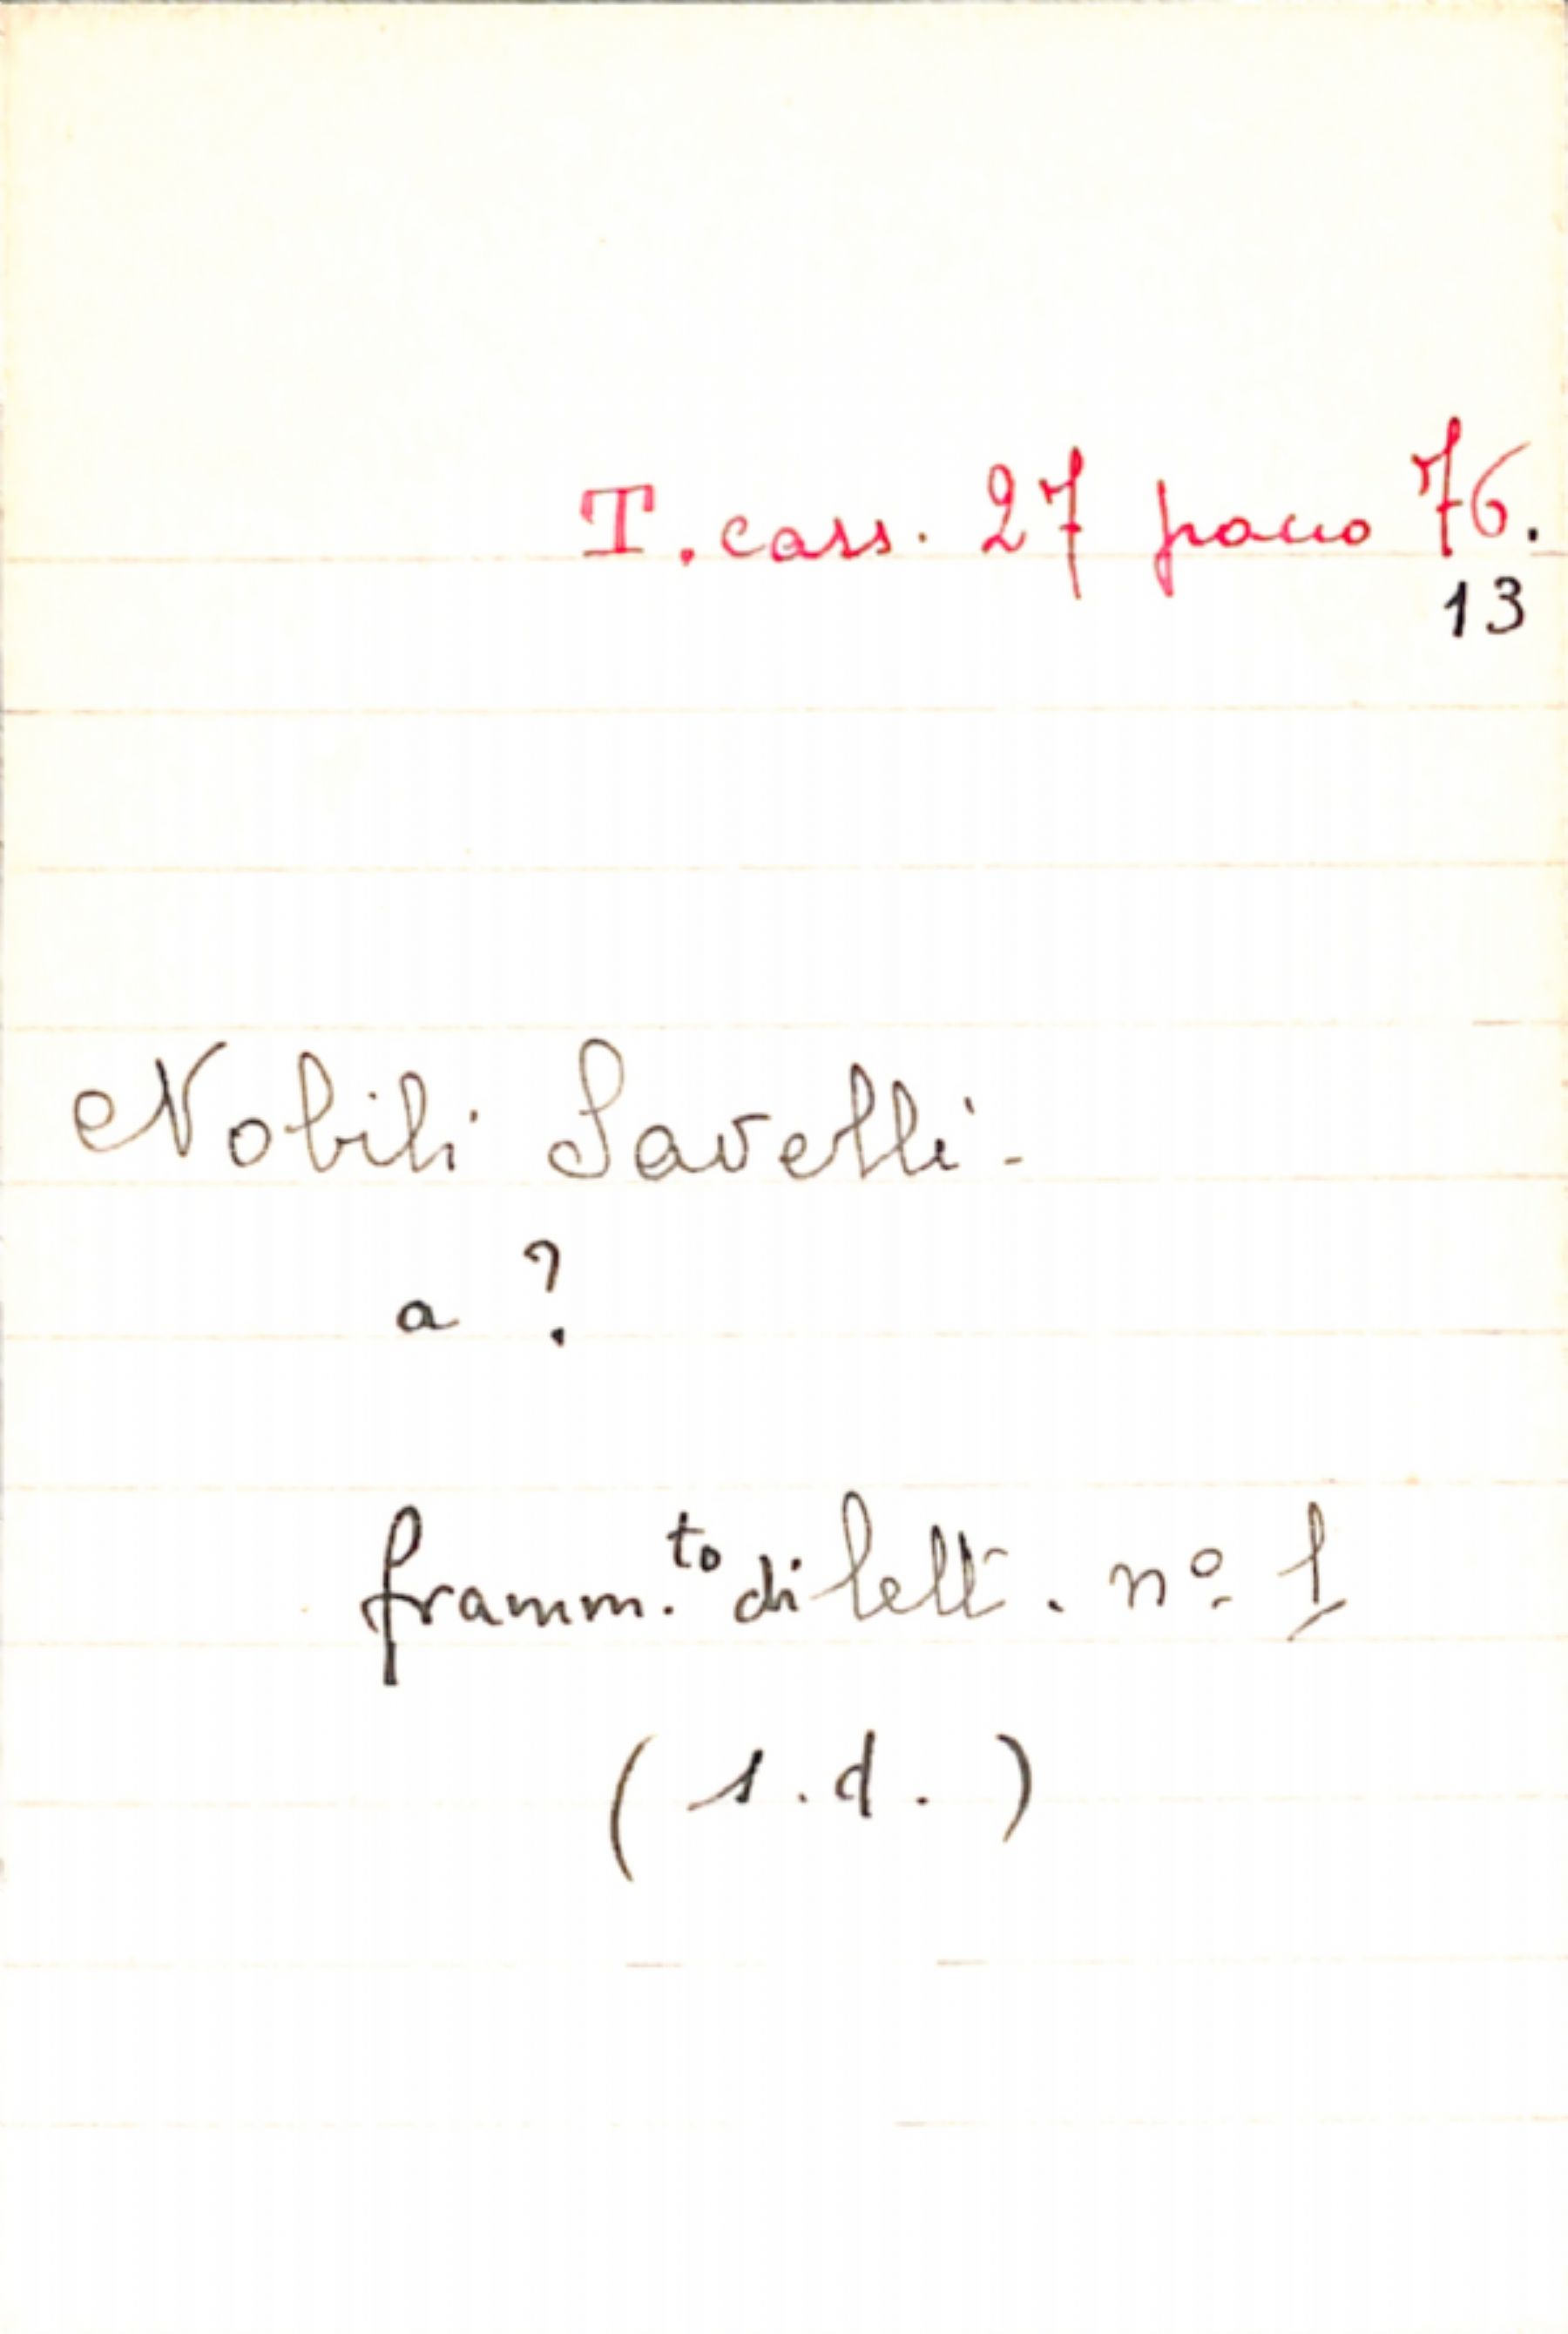 T. cass. 27 pacco 76.
13
Nobili Savelli -
a ?
framm.to di lett. nº 1
(s.d.)